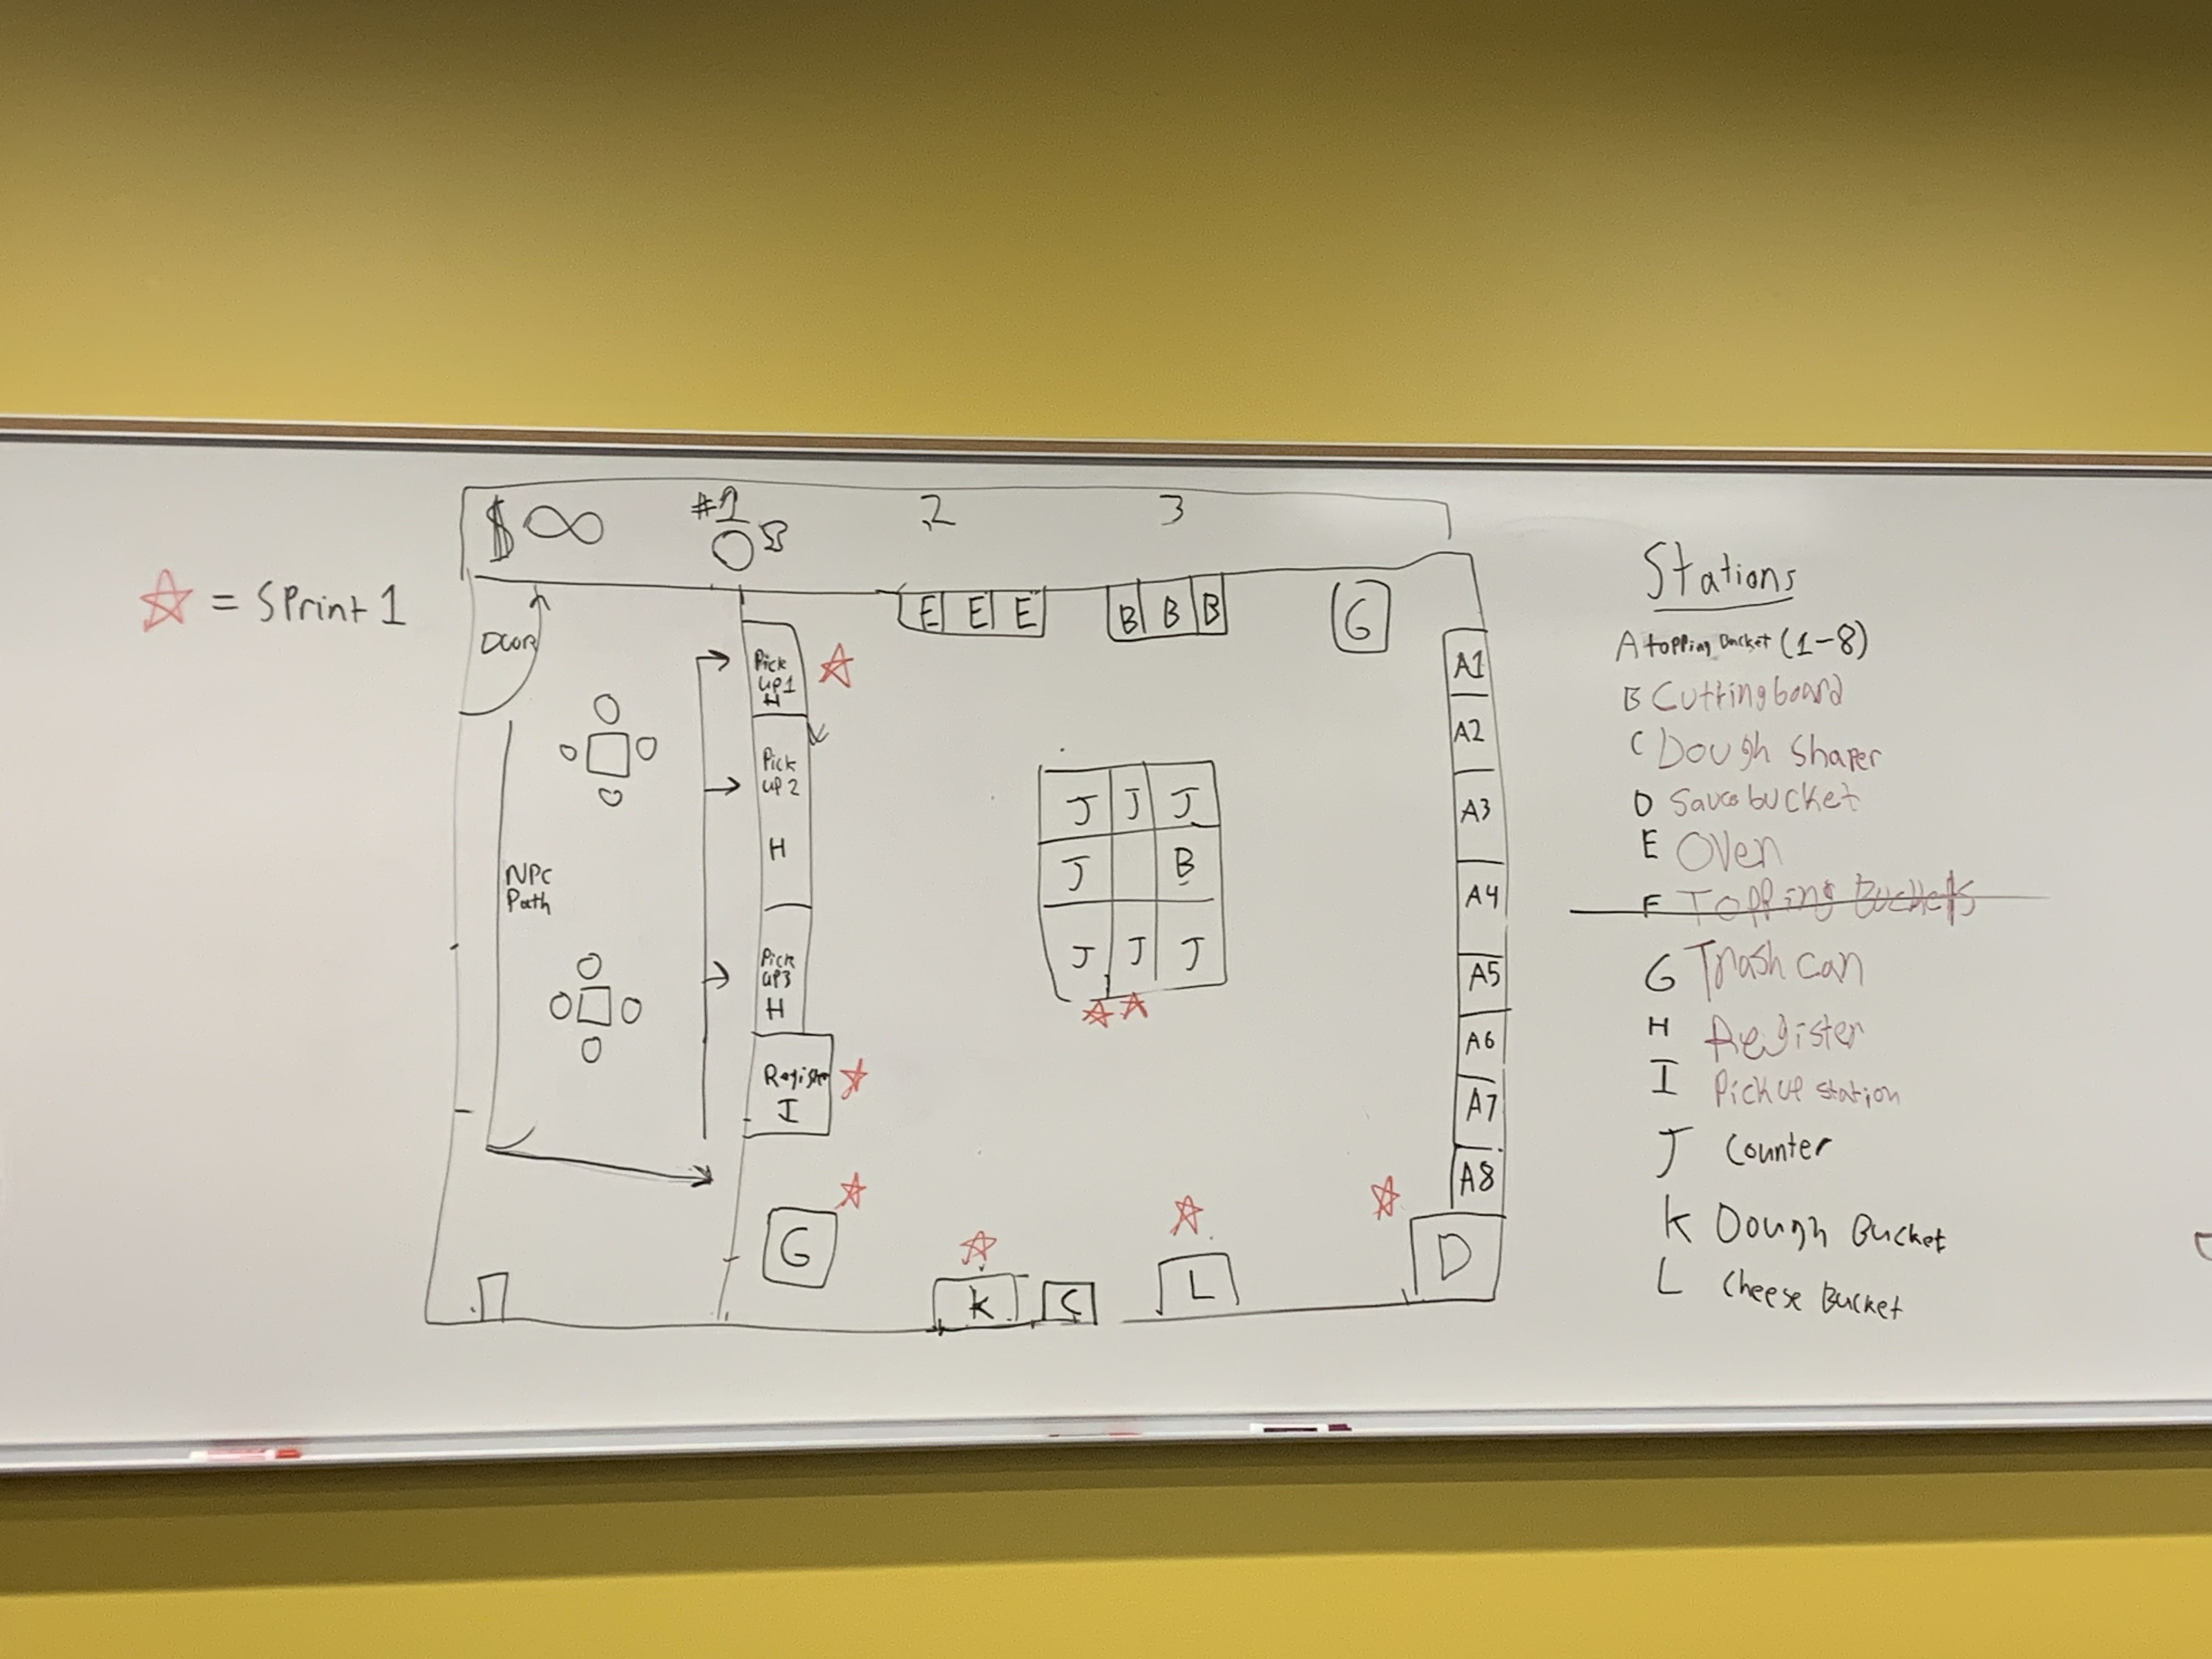 $ ∞ #1 2 3
☆ = SPrint 1
Door
E E E
B B B
G
Pick
up1
H
Pick
up 2
H
Pick
up3
H
Register
I
NPC
Path
J J J
J B
J J J
A1
A2
A3
A4
A5
A6
A7
A8
G
K
C
L
D
Stations
A topping Bucket (1-8)
B Cutting board
C Dough Shaper
D Sauce bucket
E Oven
F Topping Buckets
G Trash can
H Register
I Pick up station
J Counter
K Dough Bucket
L Cheese Bucket